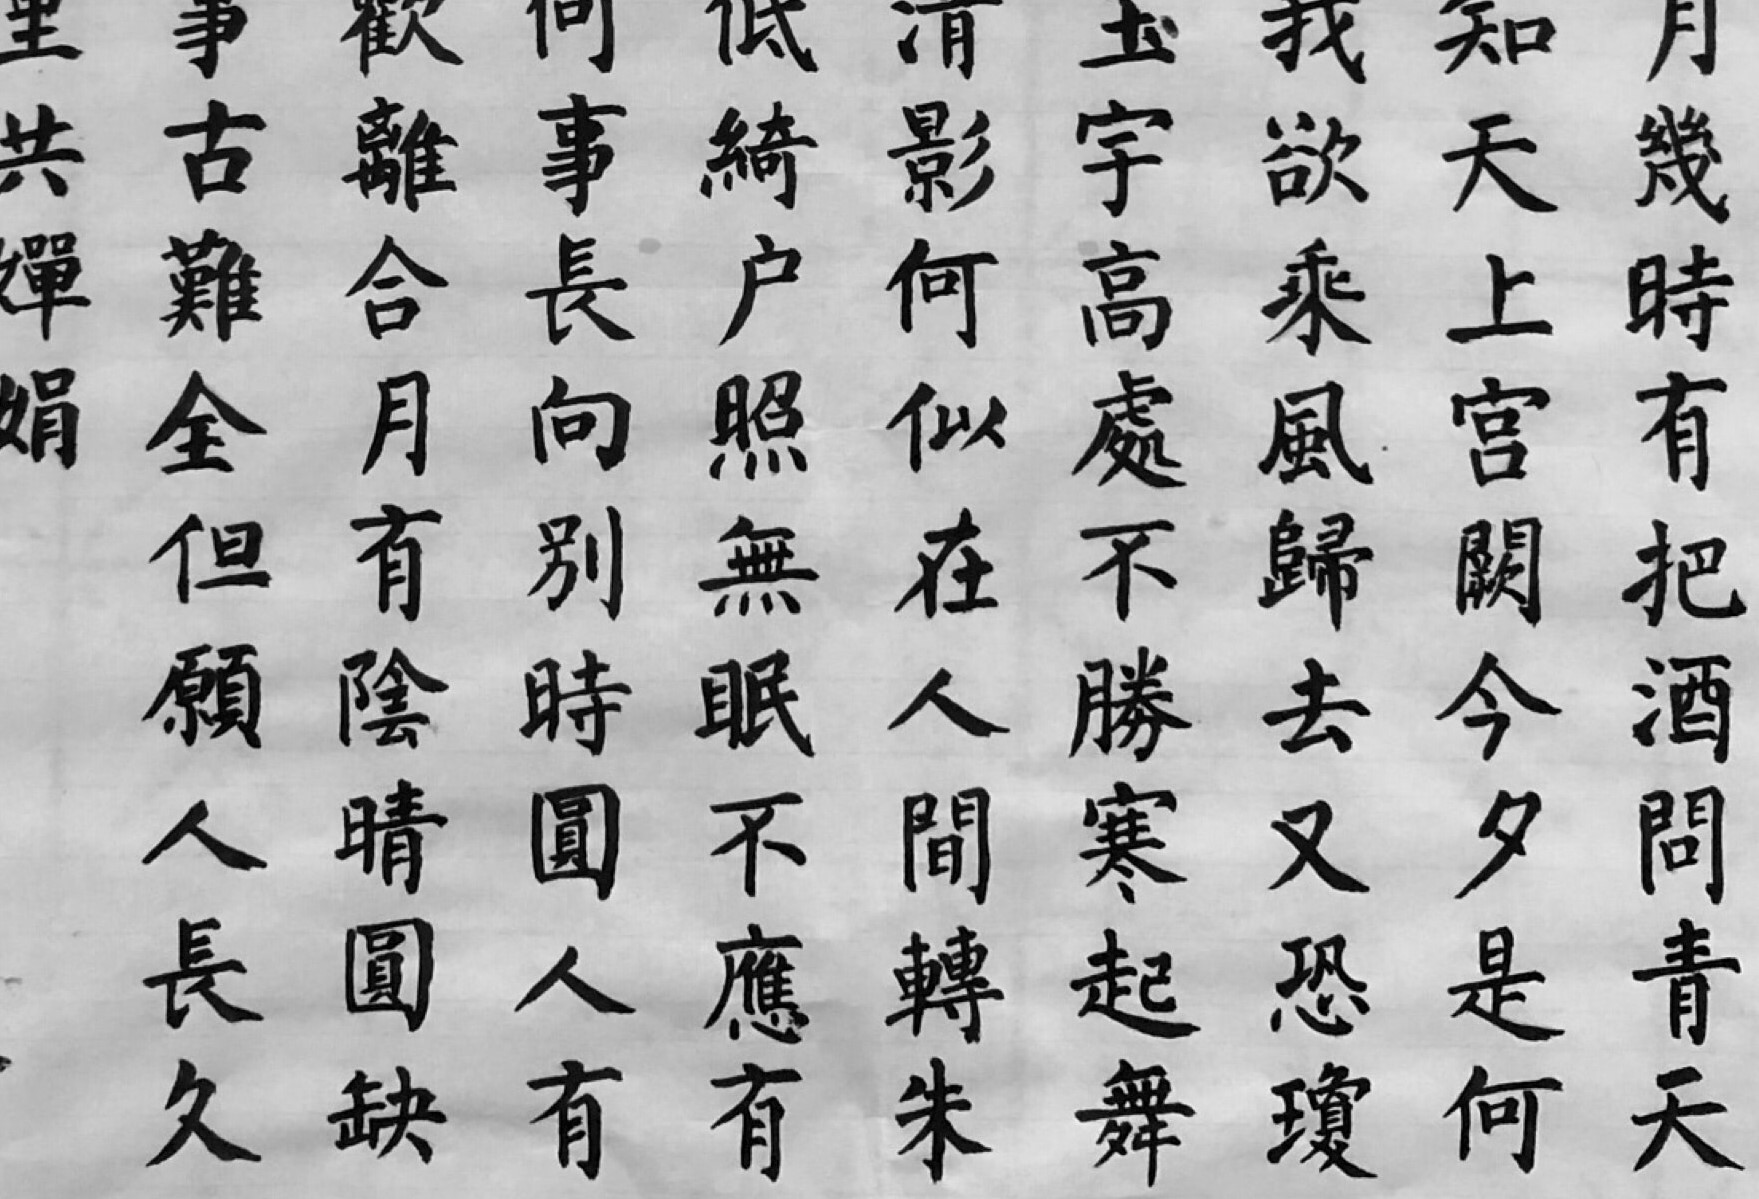 月幾時有把酒問青天
知天上宮闕今夕是何
我欲乘風歸去又恐瓊
玉宇高處不勝寒起舞
清影何似在人間轉朱
低綺户照無眠不應有
何事長向别時圓人有
歡離合月有陰晴圓缺
事古難全但願人長久
里共嬋娟